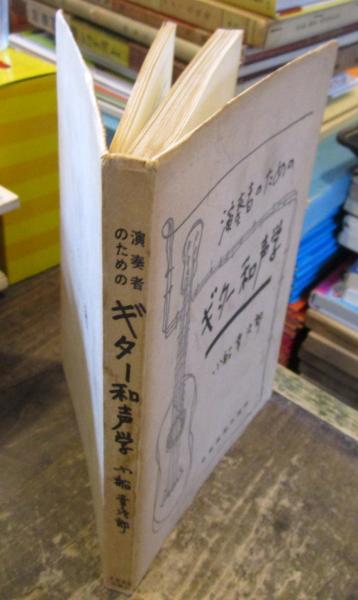 演奏者
のための
ギター和声学
小船幸次郎
演奏者のための
ギター和声学
小船幸次郎